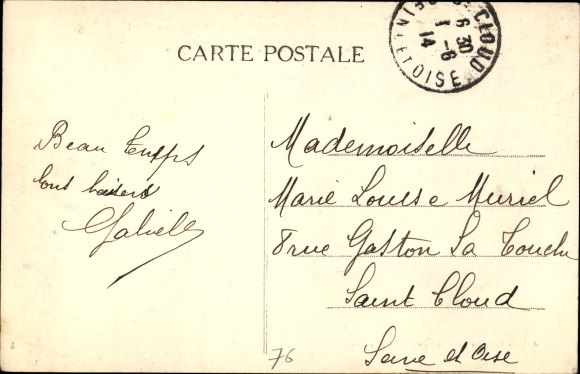 CARTE POSTALE
ST CLOUD
6 30
1 -6
14
SEINE ET OISE
Beau temps
bons baisers
Gabielle
Mademoiselle
Marie Louise Muriel
8 rue Gaston La Touche
Saint Cloud
Seine et Oise
76